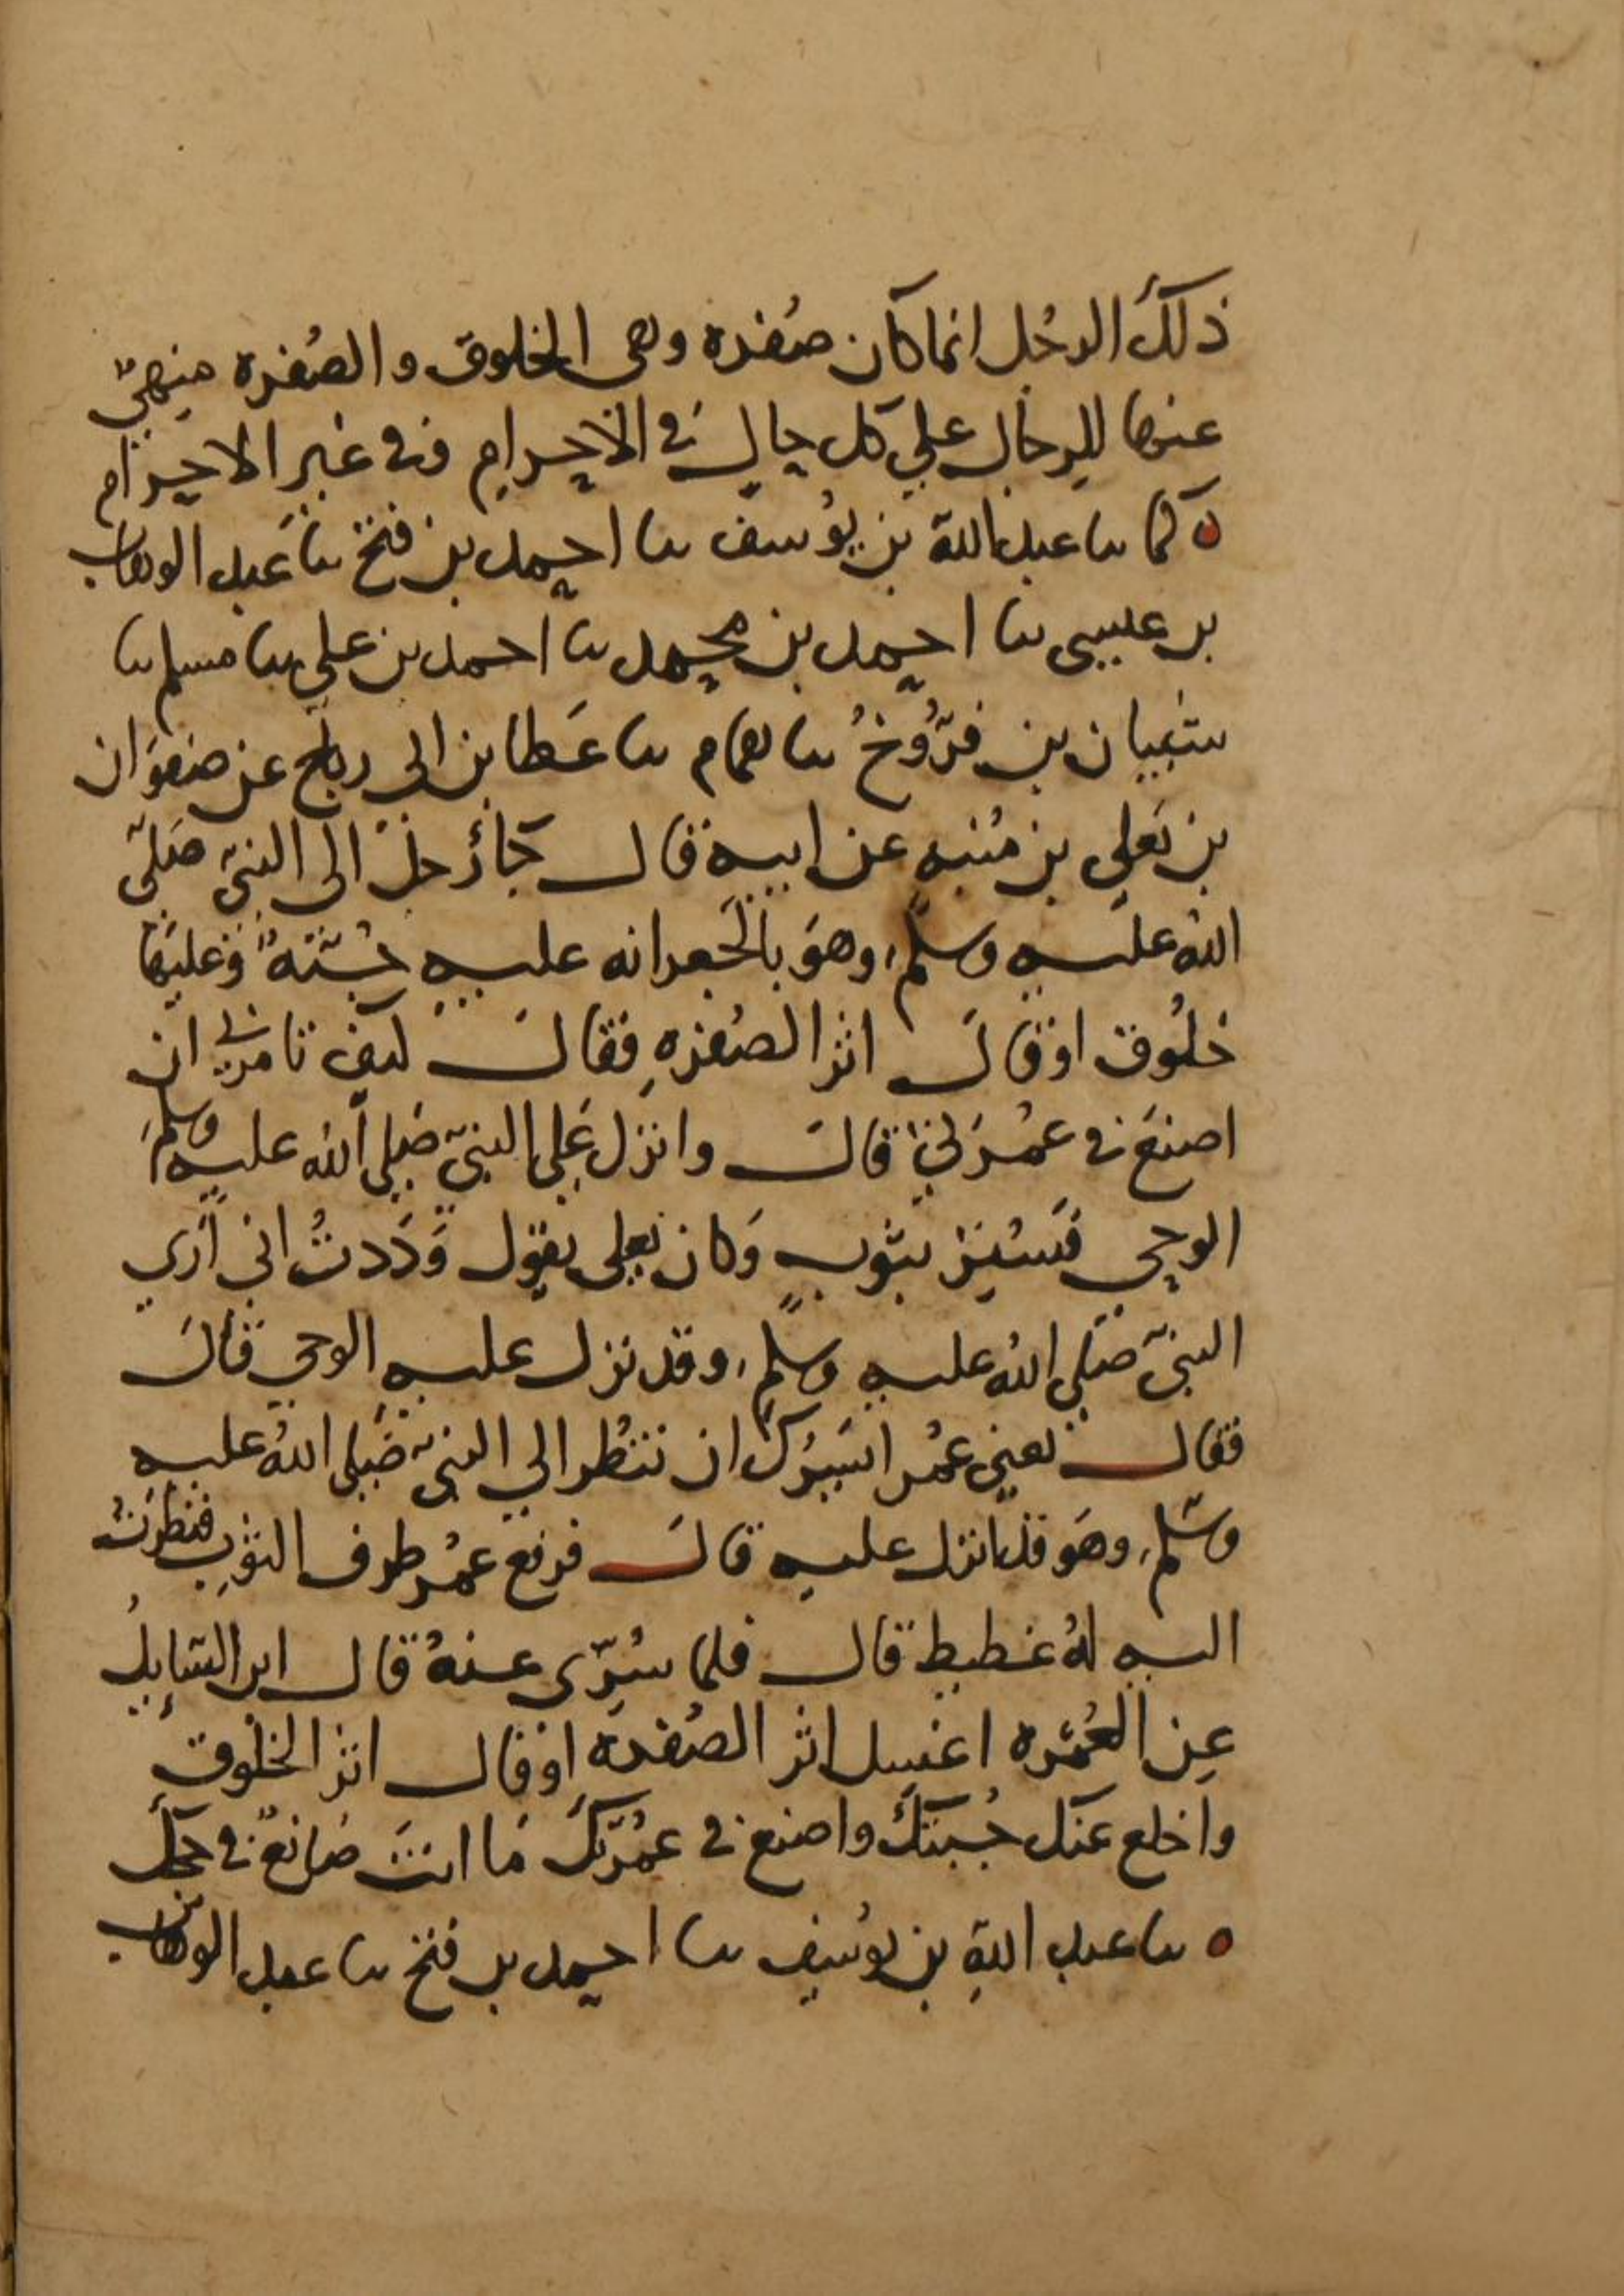 ذلكَ الرجُل انما كان صُفره وهى الخلوق والصُفره منهيّ
عنها للرجال علي كل حال في الاحرام وفي غير الاحرام
ه كما نا عبد الله بن يُوسف نا احمد بن فتح نا عَبد الوهاب
بن عيسى نا احمد بن محمد نا احمد بن علي نا مسلم نا
شيبان بن فرُّوخُ نا همام نا عَطا بن ابي رباح عن صفوَان
بن يَعلي بن مُنيه عن ابيه قال جَا رَجلٌ الى النبيّ صَلّى
اللهُ عليه وسلّم، وهوَ بالجَعرانه عليه جُبّةٌ وَعليهَا
خلُوق او قالَ اثر الصُفرهِ فقالَ كيف تامرني ان
اصنعَ في عمُرَتي قالَ وانزل عَلى النبيّ صَلي الله عليه وسلم،
الوحي فسُتِرَ بثوبٍ وَكان يعلى يقول وَدَدتُ اني أري
النبيّ صَلي اللهُ عليه وسلم، وقد نزل عليه الوحي قالَ
فقال يعني عمُر ايسَرُّكَ ان تنظُر الي النبيّ صَلى اللهُ عليه
وسَلم، وهوَ قد انزل عليه قالَ فرفع عمُر طرف الثوبِ فنظرتُ
اليه لهُ غطيط قال فلما سُرّى عنهُ قال اين السَايِلُ
عن العُمُره اغسِل اثر الصُفرة او قال اثر الخلُوق
واخلع عنك جُبتكَ واصنع في عمُرتكَ مَا انتَ صَانعٌ في حجّك
ه نا عبد اللهِ بن يُوسُف نا احمد بن فتح نا عبد الوهاب بن